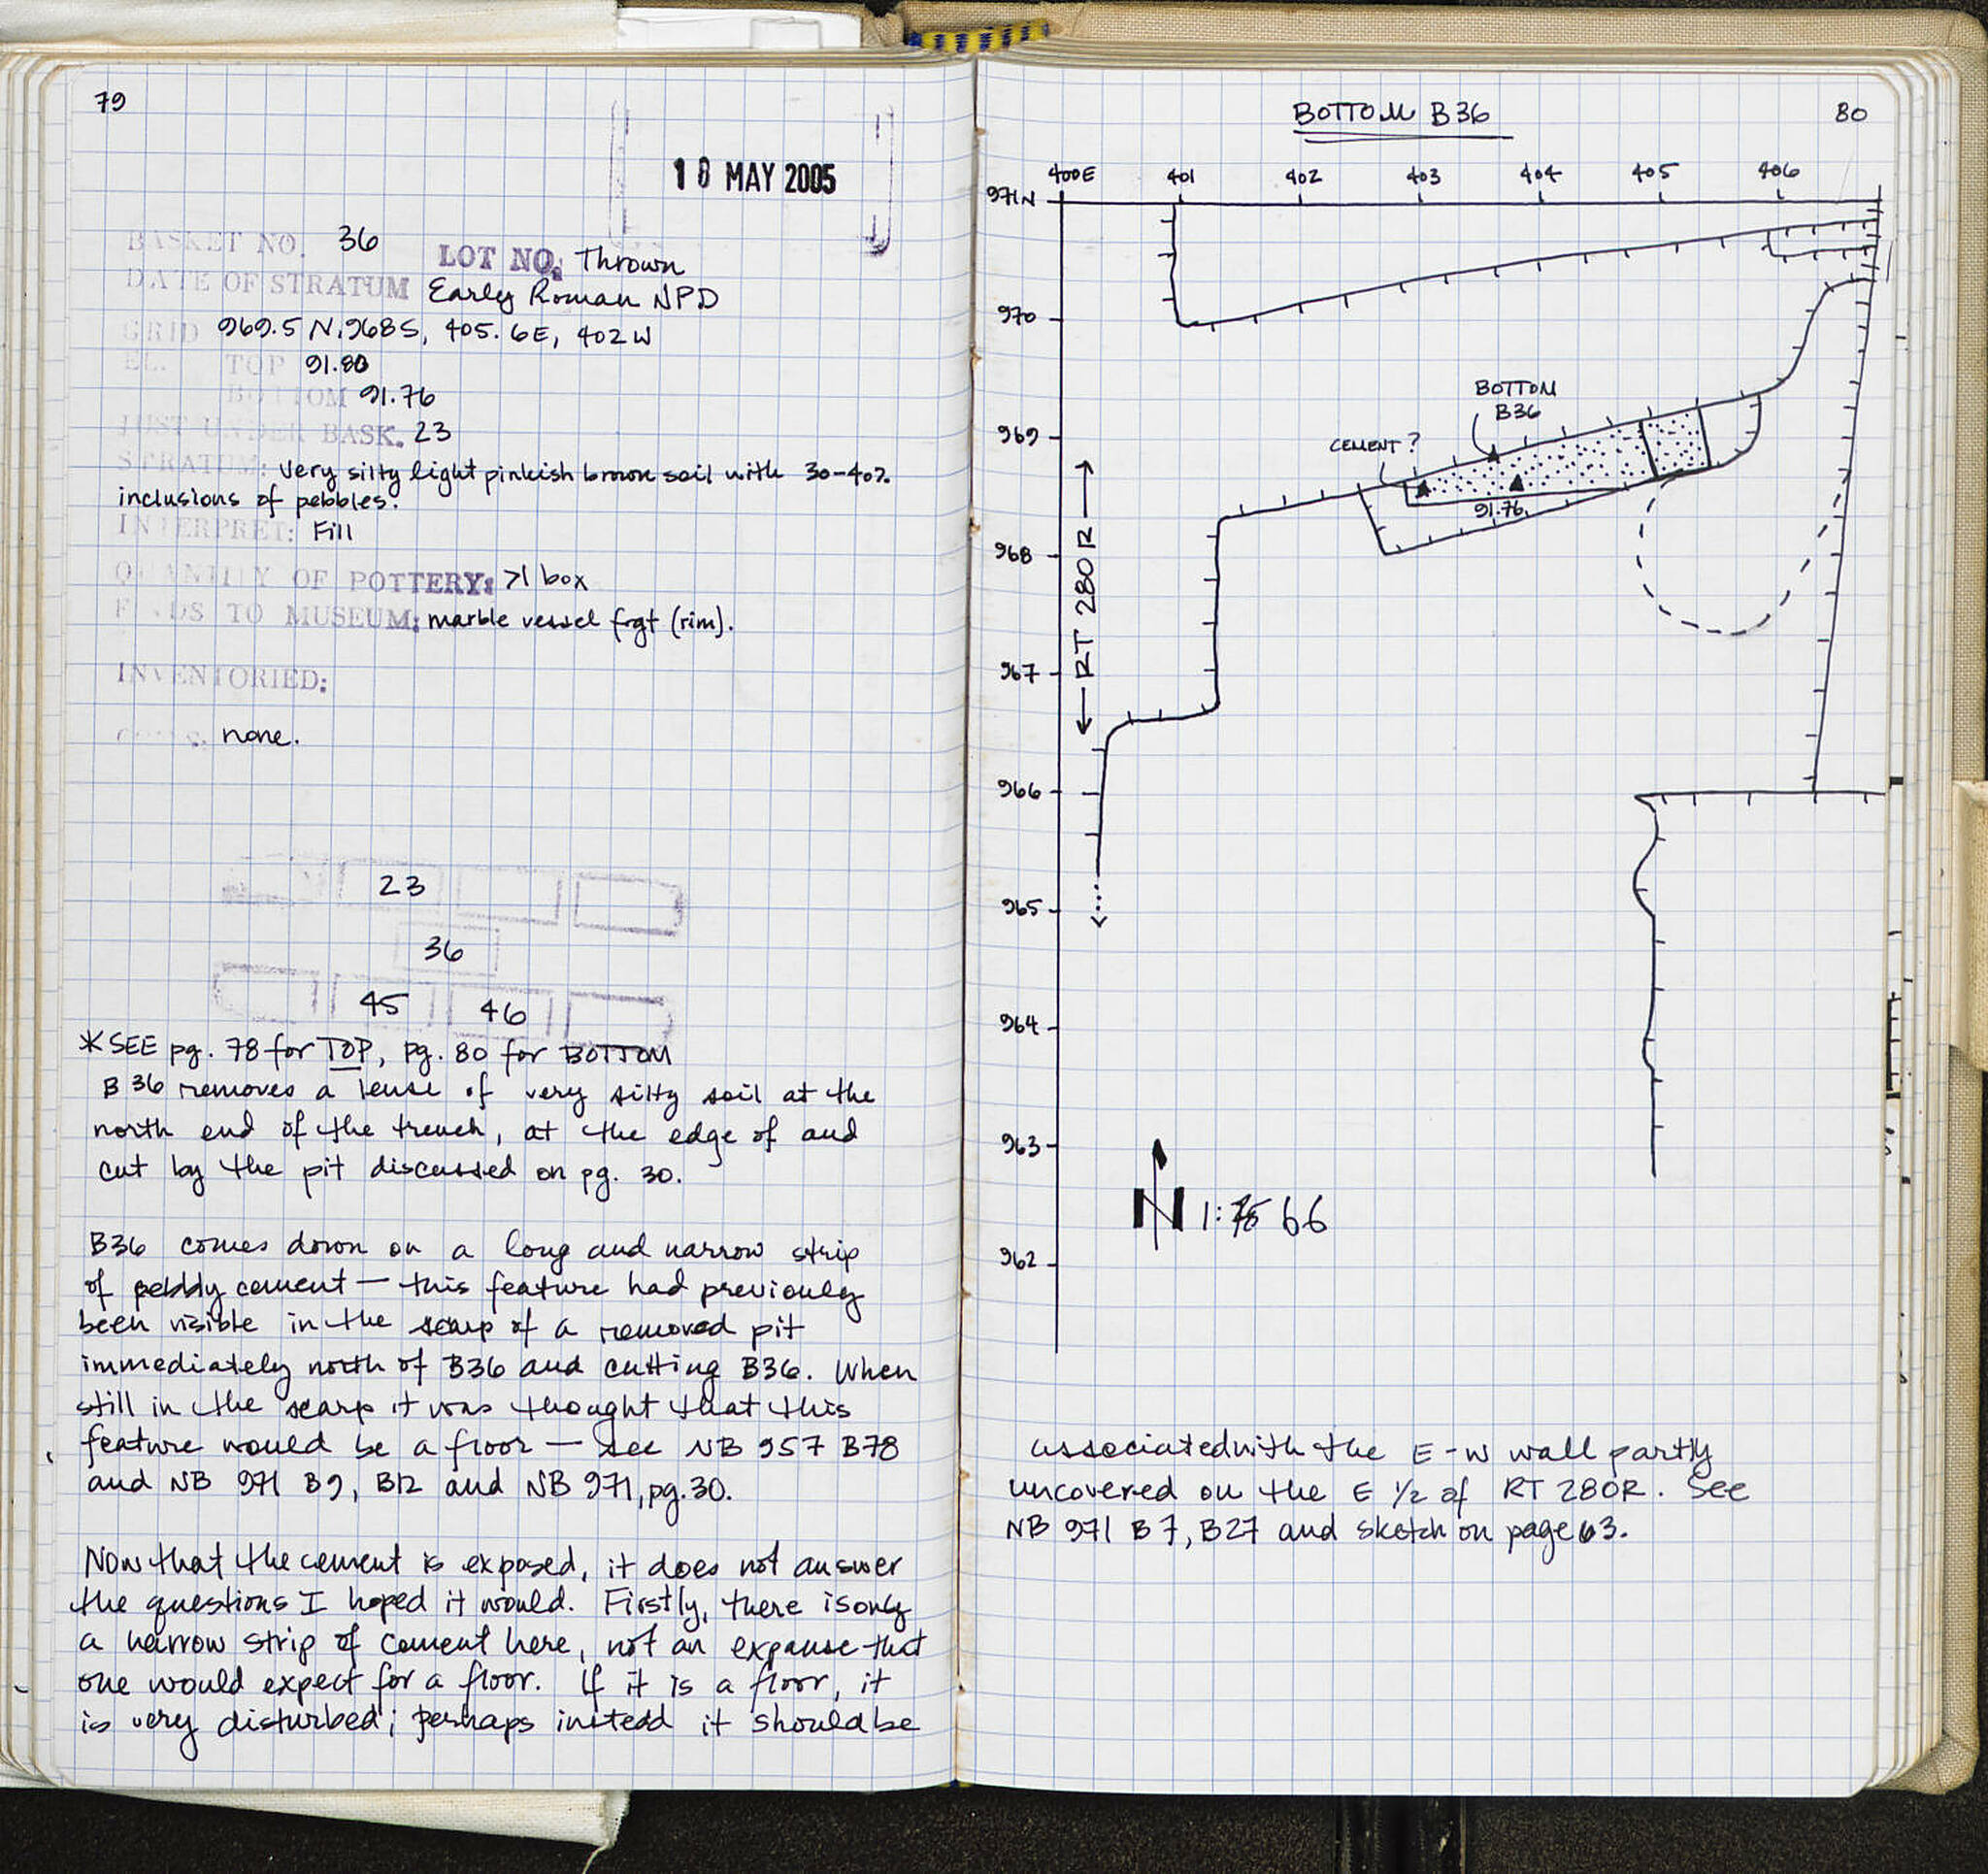 79
18 MAY 2005
BASKET NO. 36 LOT NO. Thrown
DATE OF STRATUM Early Roman NPD
GRID 969.5 N, 968 S, 405.6E, 402 W
EL. TOP 91.80
BOTTOM 91.76
JUST UNDER BASK. 23
STRATUM: Very silty light pinkish brown soil with 30-40%
inclusions of pebbles.
INTERPRET: Fill
QUANTITY OF POTTERY: >1 box
FINDS TO MUSEUM: marble vessel frgt (rim).
INVENTORIED:
COINS. none.
23
36
45 46
*SEE pg. 78 for TOP, pg. 80 for BOTTOM
B 36 removes a lense of very silty soil at the
north end of the trench, at the edge of and
cut by the pit discussed on pg. 30.
B36 comes down on a long and narrow strip
of pebbly cement — this feature had previously
been visible in the scarp of a removed pit
immediately north of B36 and cutting B36. When
still in the scarp it was thought that this
feature would be a floor — see NB 957 B78
and NB 971 B9, B12 and NB 971, pg. 30.
Now that the cement is exposed, it does not answer
the questions I hoped it would. Firstly, there is only
a narrow strip of cement here, not an expanse that
one would expect for a floor. If it is a floor, it
is very disturbed; perhaps instead it should be
BOTTOM B36
80
400E 401 402 403 404 405 406
971N
970
969
968
967
966
965
964
963
962
BOTTOM
B36
CEMENT?
91.76
← RT 280R →
N 1: 66
associated with the E-W wall partly
uncovered on the E 1/2 of RT 280R. See
NB 971 B7, B27 and sketch on page 63.